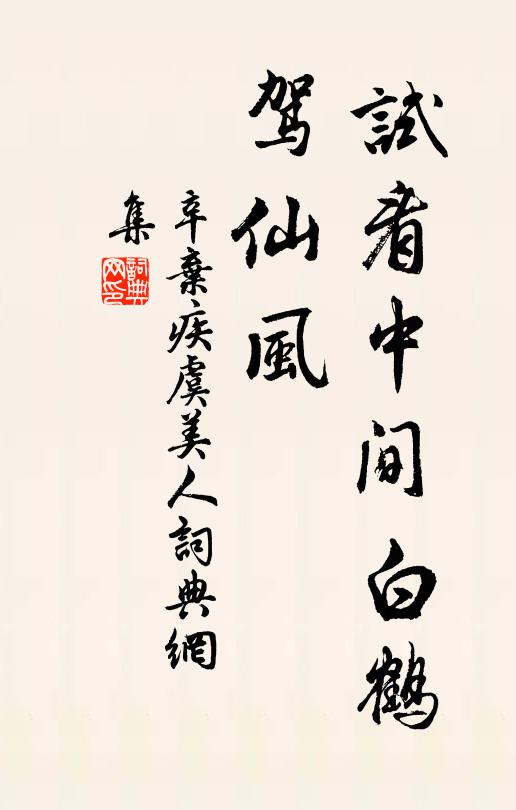 試看中間白鶴
駕仙風
辛棄疾虞美人詞典網
集
詞典網印